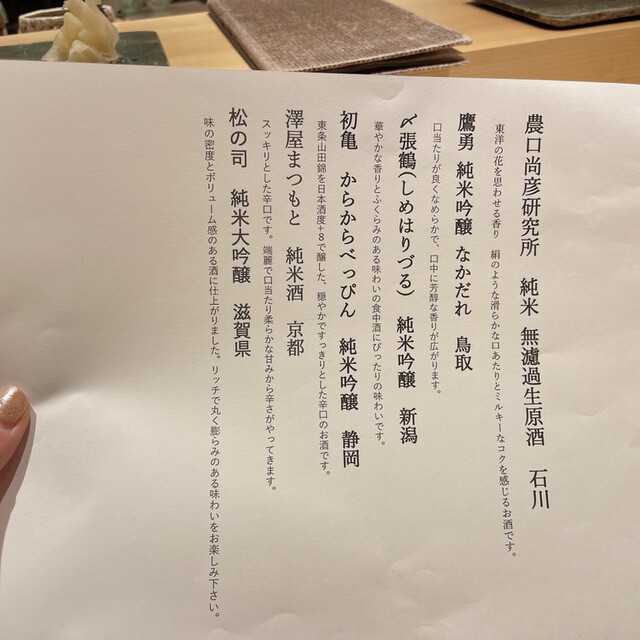 農口尚彦研究所　純米 無濾過生原酒　石川
東洋の花を思わせる香り　絹のような滑らかな口あたりとミルキーなコクを感じるお酒です。
鷹勇 純米吟醸 なかだれ　鳥取
口当たりが良くなめらかで、口中に芳醇な香りが広がります。
〆張鶴(しめはりづる)　純米吟醸　新潟
華やかな香りとふくらみのある味わいの食中酒にぴったりの味わいです。
初亀　からからべっぴん　純米吟醸　静岡
東条山田錦を日本酒度+8で醸した、穏やかですっきりとした辛口のお酒です。
澤屋まつもと　純米酒　京都
スッキリとした辛口です。端麗で口当たり柔らかな甘みから辛さがやってきます。
松の司　純米大吟醸　滋賀県
味の密度とボリューム感のある酒に仕上がりました。リッチで丸く膨らみのある味わいをお楽しみ下さい。